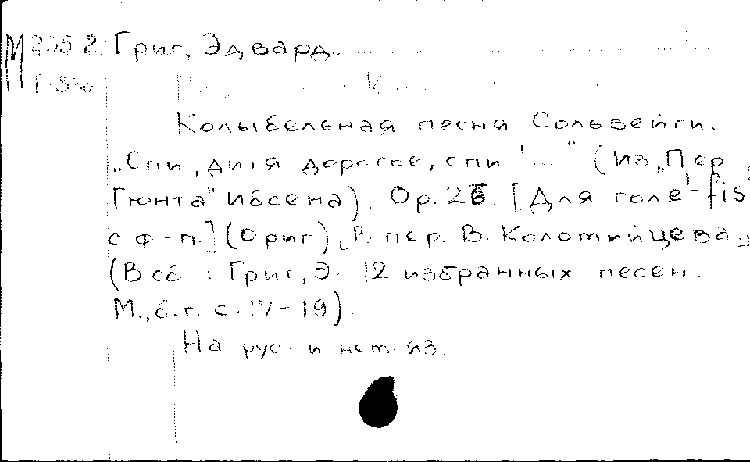 М 235 2 Григ, Эдвард.
Колыбельная песня Сольвейги.
„Спи, дитя дорогое, спи!..." (Из „Пер
Гюнта" Ибсена). Op. 23. [Для голе¹-fis²
с ф-п.] (Ориг), В. пер. В. Коломийцева.
(В сб: Григ, Э. 12 избранных песен.
М., б.г. с. 17-19).
На рус. и нем. яз.